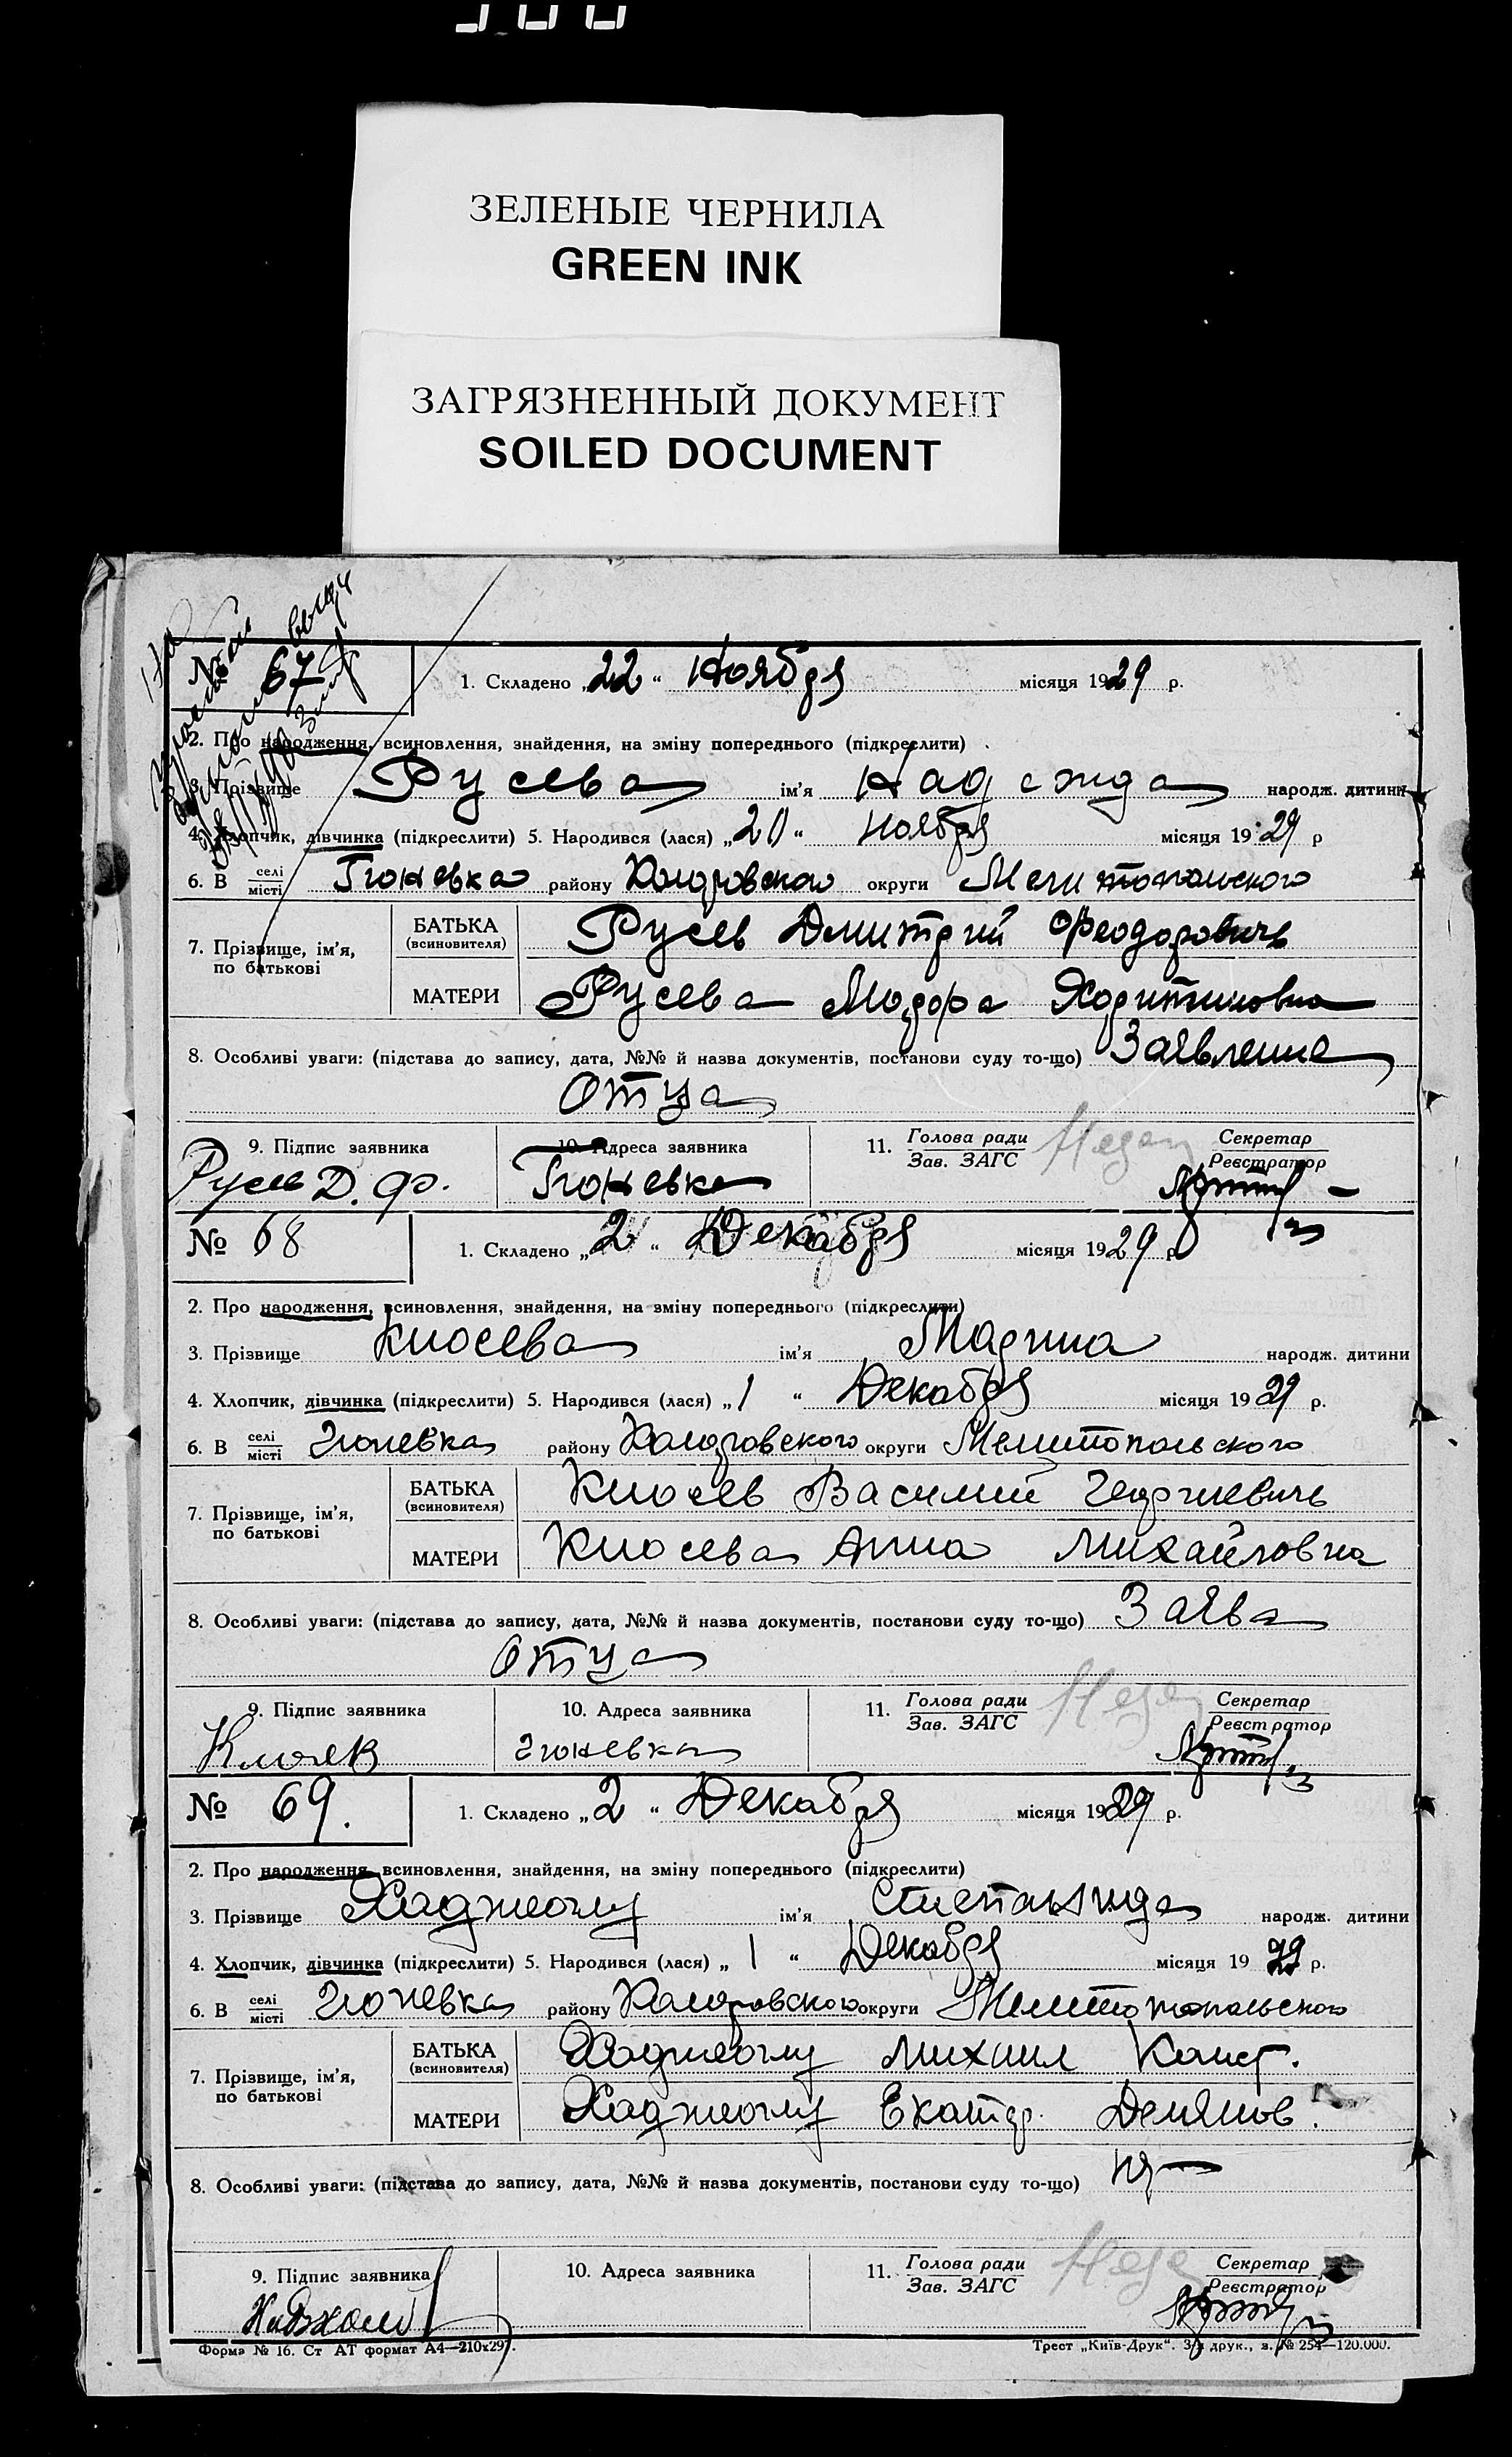 ЗЕЛЕНЫЕ ЧЕРНИЛА
GREEN INK
ЗАГРЯЗНЕННЫЙ ДОКУМЕНТ
SOILED DOCUMENT
№ 67
1. Складено „22“ Ноября місяця 1929 р.
2. Про народження, всиновлення, знайдення, на зміну попереднього (підкреслити)
3. Прізвище Русева ім'я Надежда народж. дитини
4. Хлопчик, дівчинка (підкреслити) 5. Народився (лася) „20“ Ноября місяця 1929 р
6. В селі/місті Гюневка району Коларовского округи Мелитопольского
7. Прізвище, ім'я, по батькові
БАТЬКА (всиновителя) Русев Дмитрий Феодоровичь
МАТЕРИ Русева Харитиновна
8. Особливі уваги: (підстава до запису, дата, №№ й назва документів, постанови суду то-що) Заявление
Отца
9. Підпис заявника 10. Адреса заявника 11. Голова ради/Зав. ЗАГС Секретар/Реєстратор
Русев Д. Ф. Гюневка
№ 68
1. Складено „2“ Декабря місяця 1929 р
2. Про народження, всиновлення, знайдення, на зміну попереднього (підкреслити)
3. Прізвище Кюсева ім'я Марина народж. дитини
4. Хлопчик, дівчинка (підкреслити) 5. Народився (лася) „1“ Декабря місяця 1929 р.
6. В селі/місті Гюневка району Коларовского округи Мелитопольского
7. Прізвище, ім'я, по батькові
БАТЬКА (всиновителя) Кюсев Василий Георгиевичь
МАТЕРИ Кюсева Анна Михайловна
8. Особливі уваги: (підстава до запису, дата, №№ й назва документів, постанови суду то-що) Заява
Отца
9. Підпис заявника 10. Адреса заявника 11. Голова ради/Зав. ЗАГС Секретар/Реєстратор
Гюневка
№ 69.
1. Складено „2“ Декабря місяця 1929 р.
2. Про народження, всиновлення, знайдення, на зміну попереднього (підкреслити)
3. Прізвище Хаджиоглу ім'я Степанида народж. дитини
4. Хлопчик, дівчинка (підкреслити) 5. Народився (лася) „1“ Декабря місяця 1929 р.
6. В селі/місті Гюневка району Коларовского округи Мелитопольского
7. Прізвище, ім'я, по батькові
БАТЬКА (всиновителя) Хаджиоглу Михаил Конст.
МАТЕРИ Хаджиоглу Екатер. Демянов.
8. Особливі уваги: (підстава до запису, дата, №№ й назва документів, постанови суду то-що)
9. Підпис заявника 10. Адреса заявника 11. Голова ради/Зав. ЗАГС Секретар/Реєстратор
Форма № 16. Ст АТ формат А4—210х297. Трест „Київ-Друк“. 3-я друк., з. № 254—120.000.